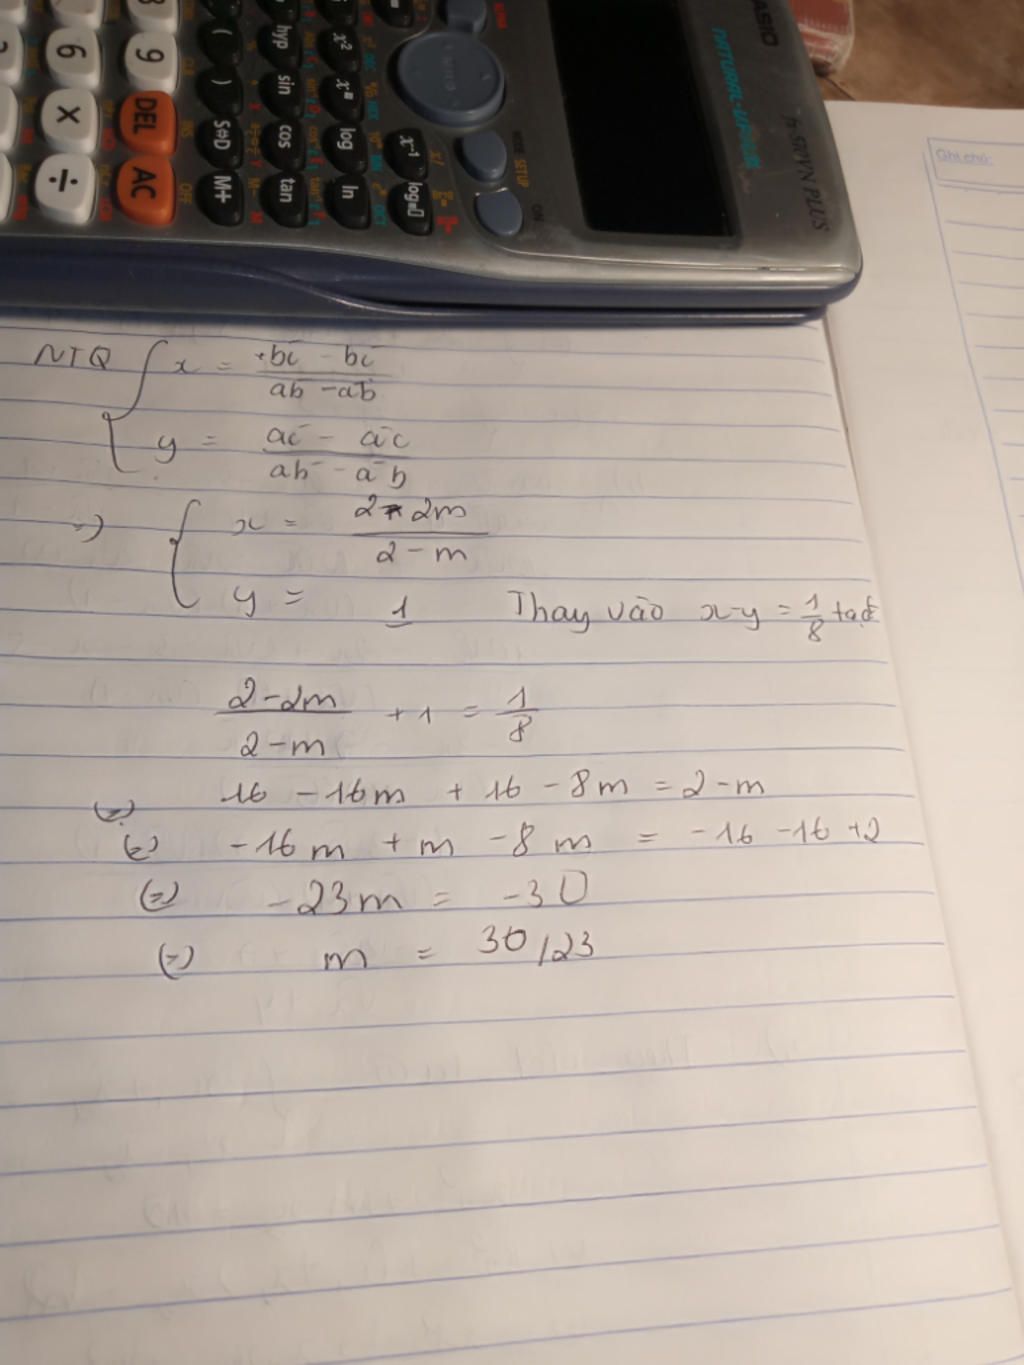 CASIO
fx-570VN PLUS
NATURAL-V.P.A.M.
SETUP
ON
x⁻¹
log
x²
xⁿ
log
ln
hyp
sin
cos
tan
(
)
S⇔D
M+
9
DEL
AC
6
×
÷
Ghi chú:
NTQ { x = bc̄ - bc̄ / ab̄ - ab̄
y = ac̄ - āc / ab̄ - āb
=> { x = 2 - 2m / 2 - m
y = 1 Thay vào x-y = 1/8 tađc
2-2m / 2-m + 1 = 1/8
(=) 16 - 16m + 16 - 8m = 2-m
(=) -16m + m - 8m = -16 -16 +2
(=) -23m = -30
(=) m = 30/23